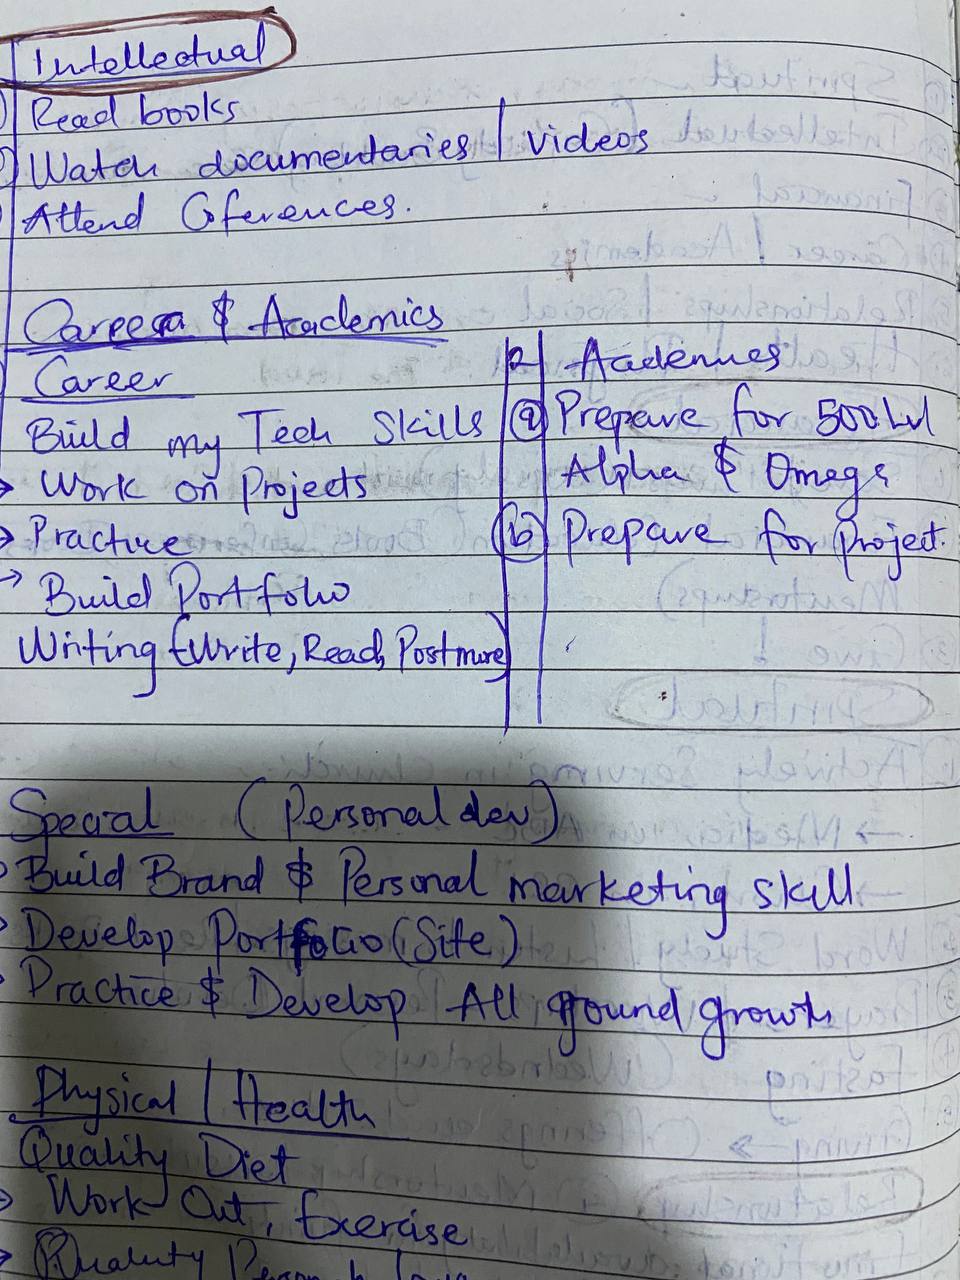 Intellectual
Read books
Watch documentaries / videos
Attend Conferences.
Career & Academics
Career
Build my Tech Skills
→ Work on Projects
→ Practice
→ Build Portfolio
Writing (Write, Read, Post more)
2 Academics
(a) Prepare for 500Lvl
Alpha & Omega
(b) Prepare for project.
Special (Personal dev)
Build Brand & Personal marketing skill
Develop Portfolio (Site)
Practice & Develop All round growth
Physical / Health
Quality Diet
→ Work Out, Exercise
→ Quality